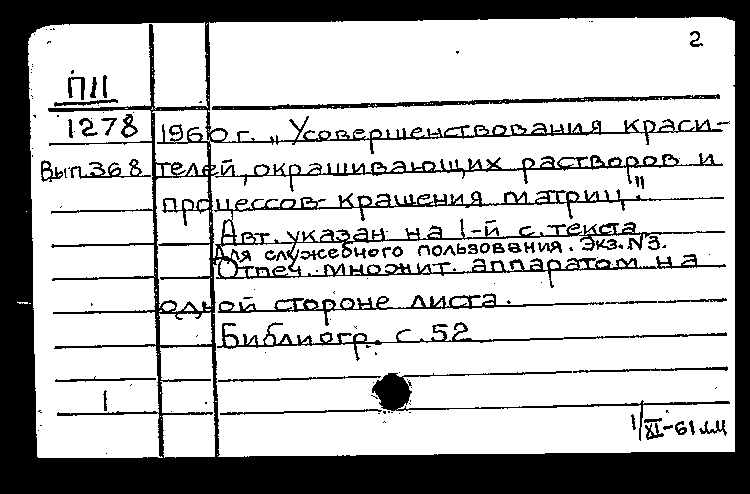 2
П11
1278 1960 г. „Усовершенствования краси-
Вып.368 телей, окрашивающих растворов и
процессов крашения матриц."
Авт. указан на 1-й с. текста
Для служебного пользования. Экз. №3.
Отпеч. множит. аппаратом на
одной стороне листа.
Библиогр. с. 52
1
1/XI-61